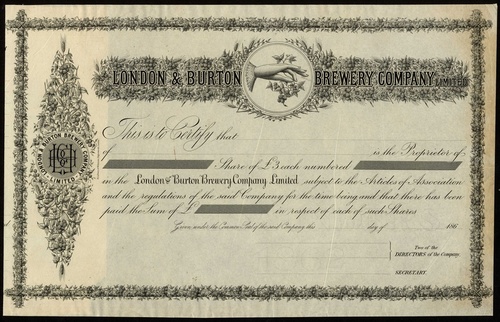 LONDON & BURTON BREWERY COMPANY LIMITED
This is to Certify that
of is the Proprietor of
Share of £3 each numbered
in the London and Burton Brewery Company Limited subject to the Articles of Association
and the regulations of the said Company for the time being and that there has been
paid the Sum of £ in respect of each of such Shares
Given under the Common Seal of the said Company this day of 186
Two of the
DIRECTORS of the Company.
SECRETARY.
LONDON & BURTON BREWERY COMPANY
LIMITED